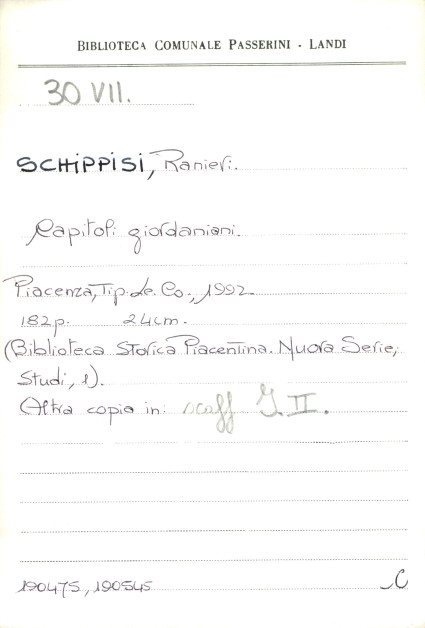 BIBLIOTECA COMUNALE PASSERINI - LANDI
30 VII.
SCHIPPISI, Ranieri.
Capitoli giordaniani.
Piacenza, Tip.Le.Co., 1992.
182p. 24cm.
(Biblioteca Storica Piacentina. Nuova Serie;
Studi, 1).
Altra copia in: scaff II.
190475, 190545